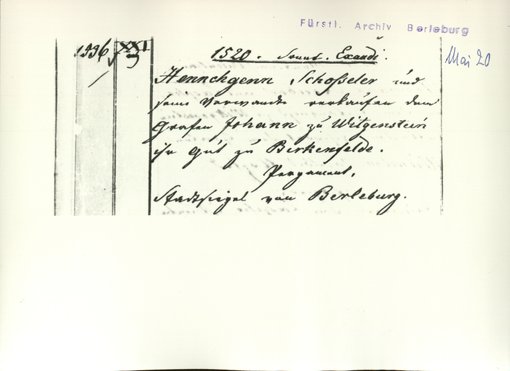 Fürstl. Archiv Berleburg
Mai 20
1996 XXI
1520. Sonnt. Exaudi.
Hennchgenn Schoßeler und
seine Verwandte verkaufen dem
Grafen Johann zu Witgenstein
ihr Gut zu Birkenfelde.
Pergament,
Stadtsiegel von Berleburg.